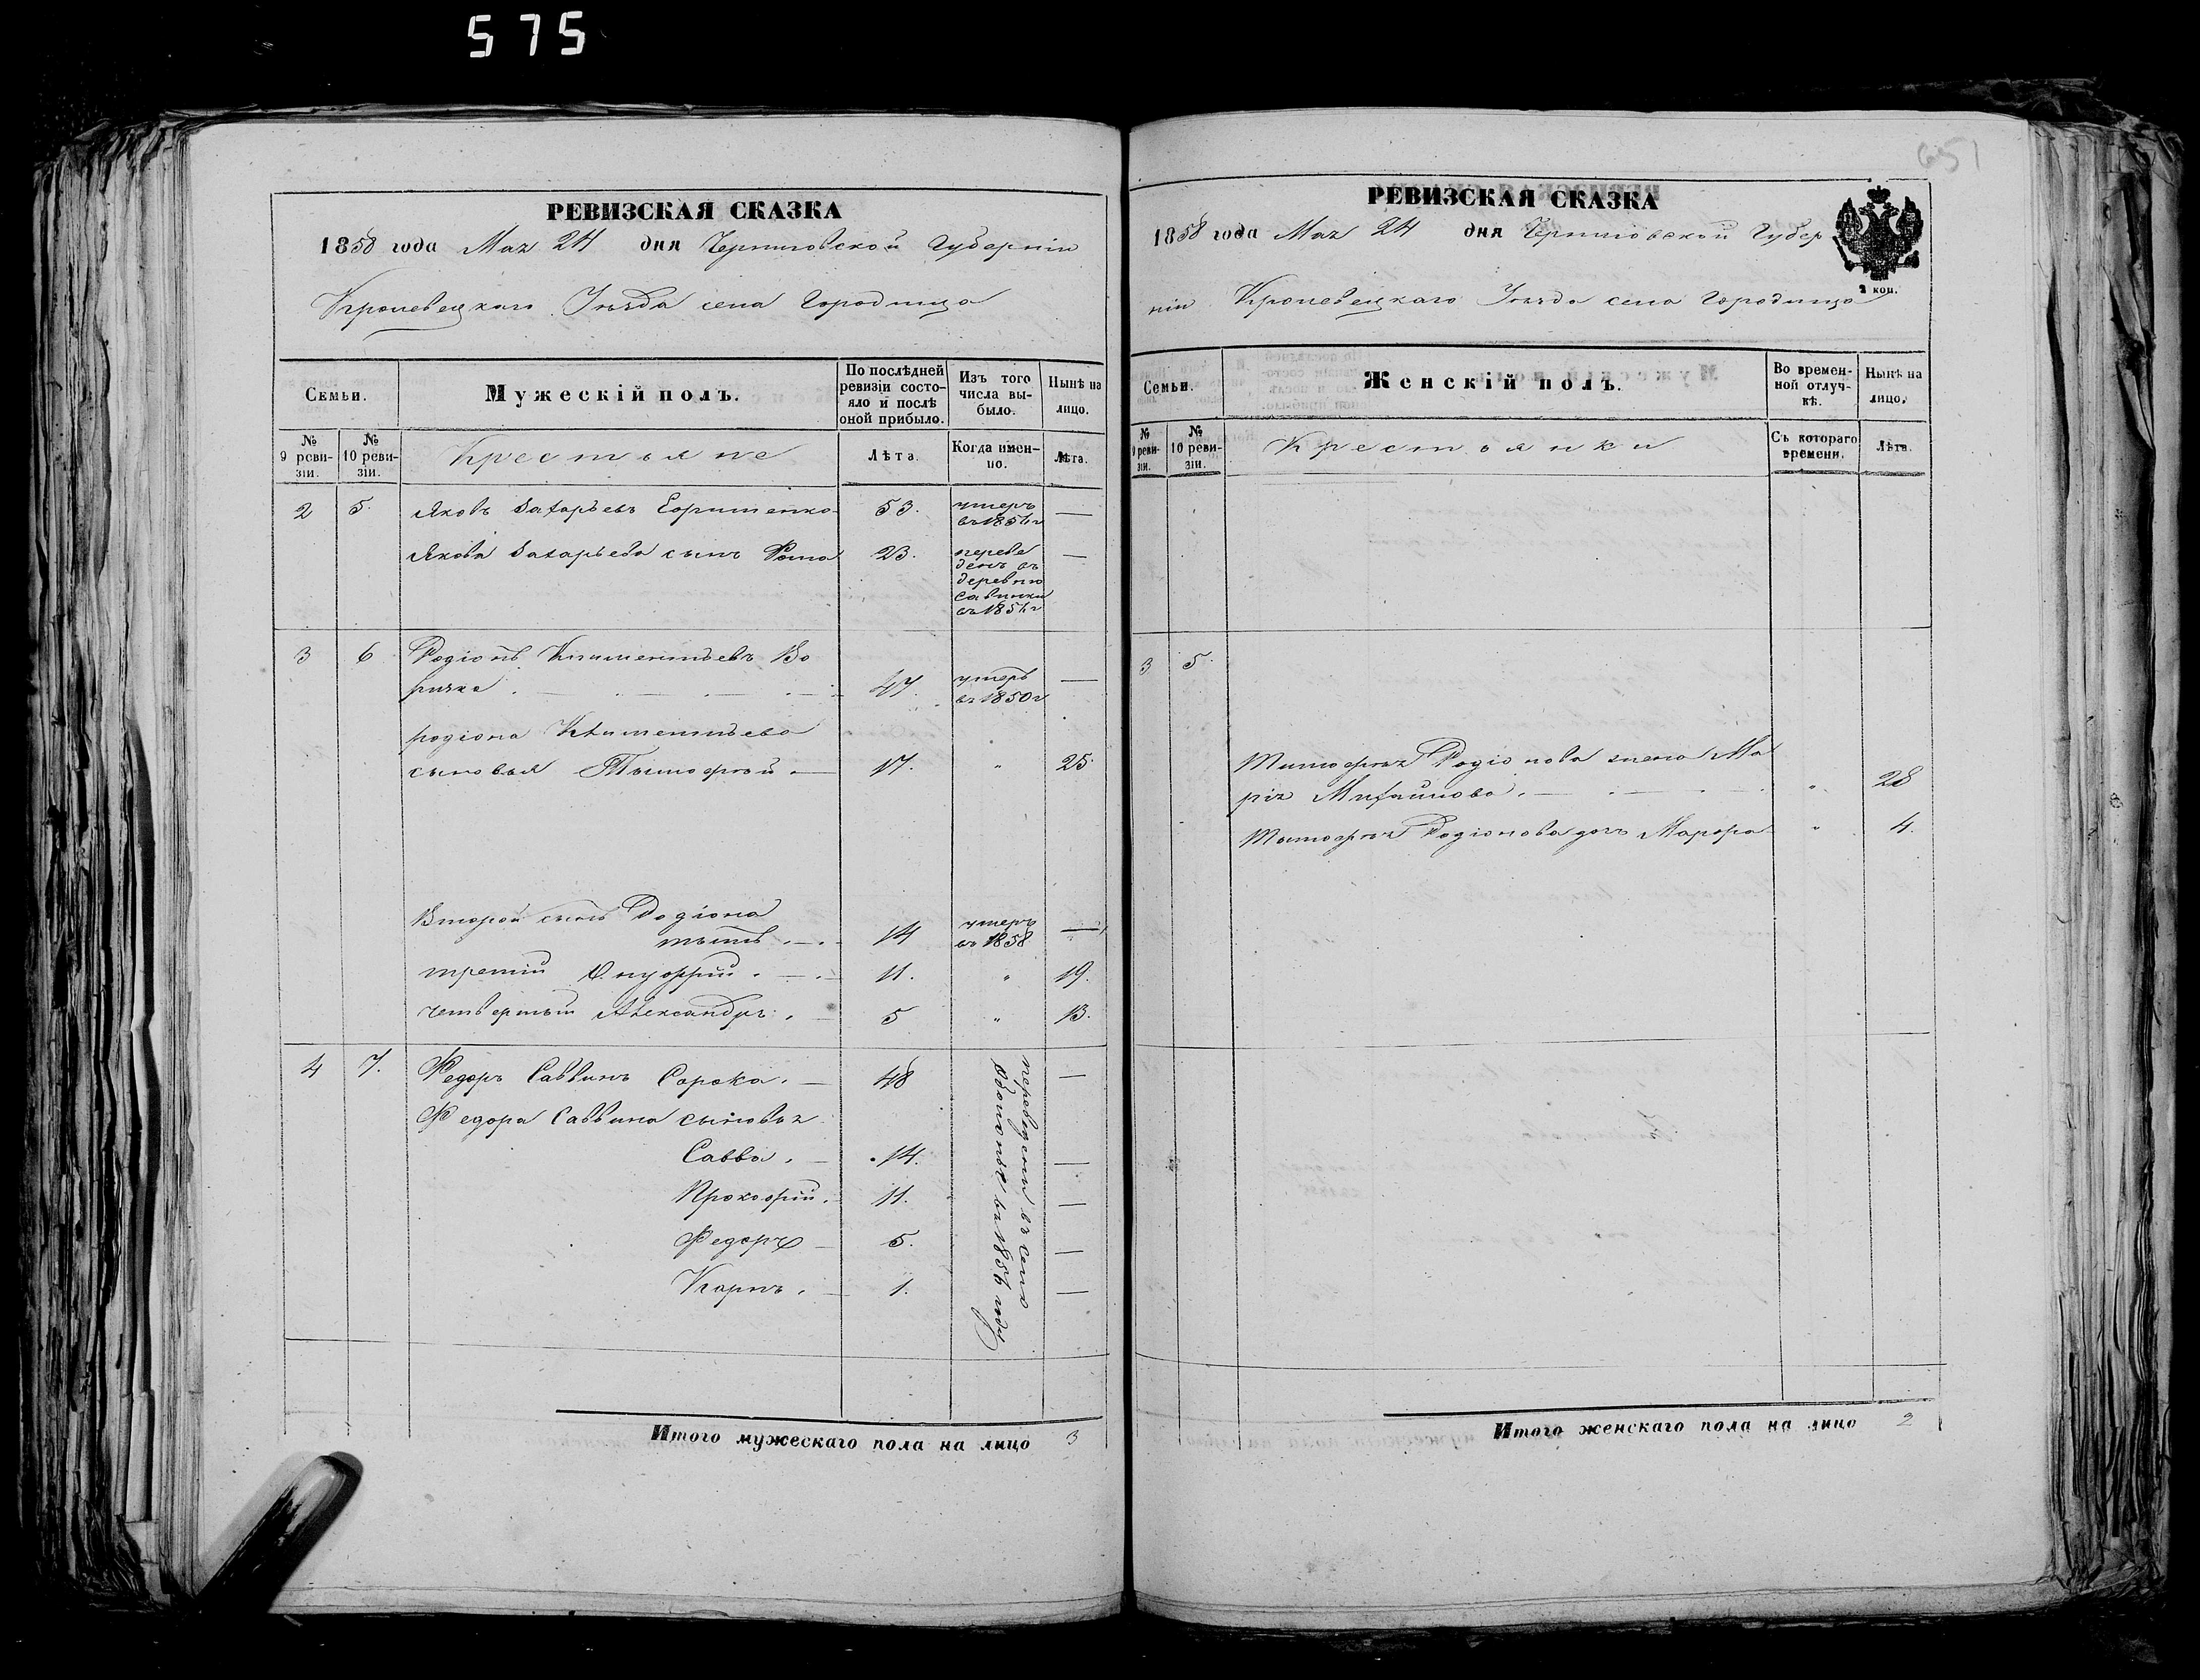 575
651
РЕВИЗСКАЯ СКАЗКА
1858 года Мая 24 дня Черниговской Губерніи
Кролевецкаго Уѣзда села Городища
Семьи.
Мужескій полъ.
По послѣдней ревизіи состояло и послѣ оной прибыло.
Изъ того числа выбыло.
Нынѣ на лицо.
№ 9 ревизіи.
№ 10 ревизіи.
Крестьяне
Лѣта.
Когда именно.
Лѣта.
2 5. Яковъ Захарьевъ 53. умеръ —
въ 1851 г
Якова Захарьева сынъ 23. переве —
денъ въ
деревню
Савинки
3 6 Родіонъ Климентьевъ Во
ричка 47. умеръ —
въ 1850 г
родіона Климентьева
сыновья Тимофей — 17. " 25.
Второй сынъ Родіона
14 умеръ —
въ 1858
третій Онуфрій 11. " 19.
четвертый Александръ 5 " 13.
4 7. Федоръ Саввинъ Сорока. — 48 —
Федора Саввина сыновья
Савва. — 14. —
Прокофій. 11. —
Федоръ — 5. —
Карпъ. — 1. —
переведены въ село
въ 185 году
Итого мужескаго пола на лицо 3
РЕВИЗСКАЯ СКАЗКА
1858 года Мая 24 дня Черниговской Губер
ніи Кролевецкаго Уѣзда села Городища
2 коп.
Семьи.
Женскій полъ.
Во временной отлучкѣ.
Нынѣ на лицо.
№ 9 ревизіи.
№ 10 ревизіи.
Крестьянки
Съ котораго времени.
Лѣта.
3 5.
Тимофея Родіонова жена Ма
рія Михайлова. — " 28
Тимофея Родіонова дочь " 4.
Итого женскаго пола на лицо 2